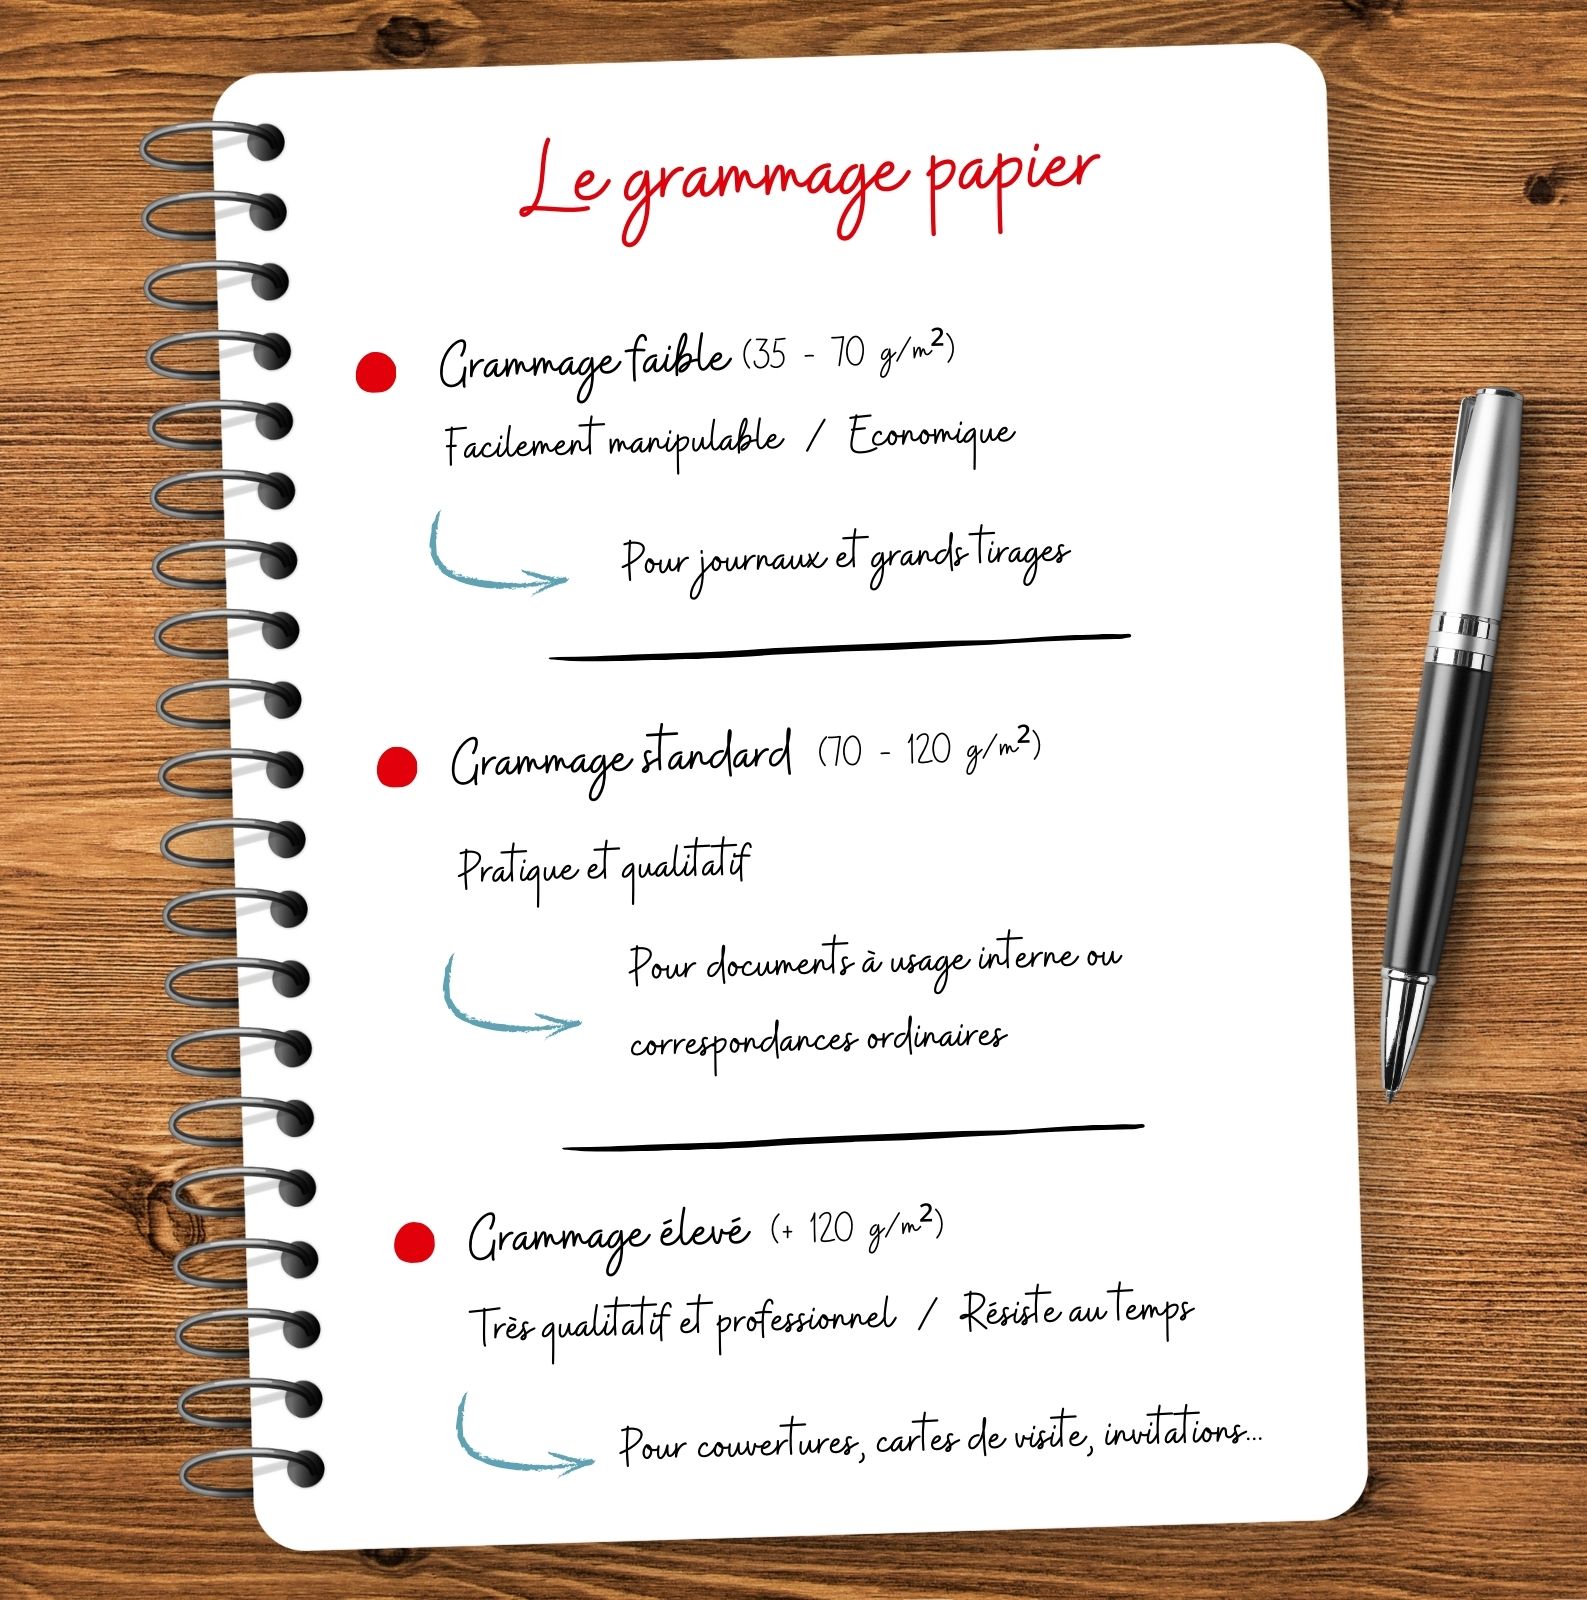 Le grammage papier
Grammage faible (35 - 70 g/m²)
Facilement manipulable / Economique
Pour journaux et grands tirages
Grammage standard (70 - 120 g/m²)
Pratique et qualitatif
Pour documents à usage interne ou
correspondances ordinaires
Grammage élevé (+ 120 g/m²)
Très qualitatif et professionnel / Résiste au temps
Pour couvertures, cartes de visite, invitations...